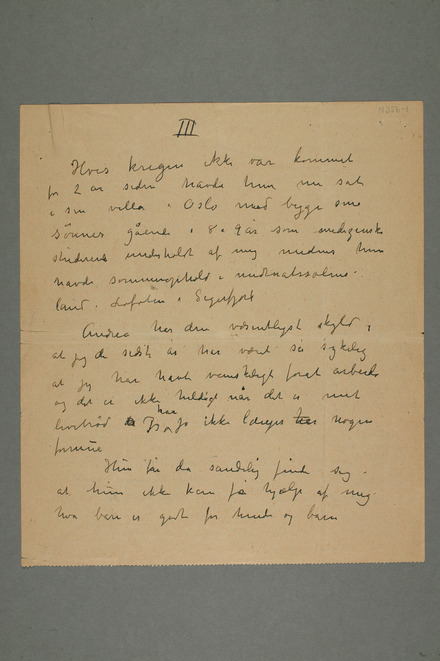 N386-1
III
Hvis krigen ikke var kommet
for 2 år siden havde hun nu sat
i sin villa i Oslo med begge sine
sønner gående i 8 og år som medicinske
studerende underholdt af mig medens hun
havde sommerophold i midnatssolens
land i Lofoten i Segerfjort
Andrea har den væsentligste skyld i
at jeg de sidste år har været så sykelig
at jeg har havt vanskeligt forat arbeide
og det er ikke heldigt når det er mit
levebrød jeg har jo ikke længer nogen
formue
Hun får da sandelig finde sig i
at hun ikke kan få hjælp af mig
hva bare er godt for hende og barn